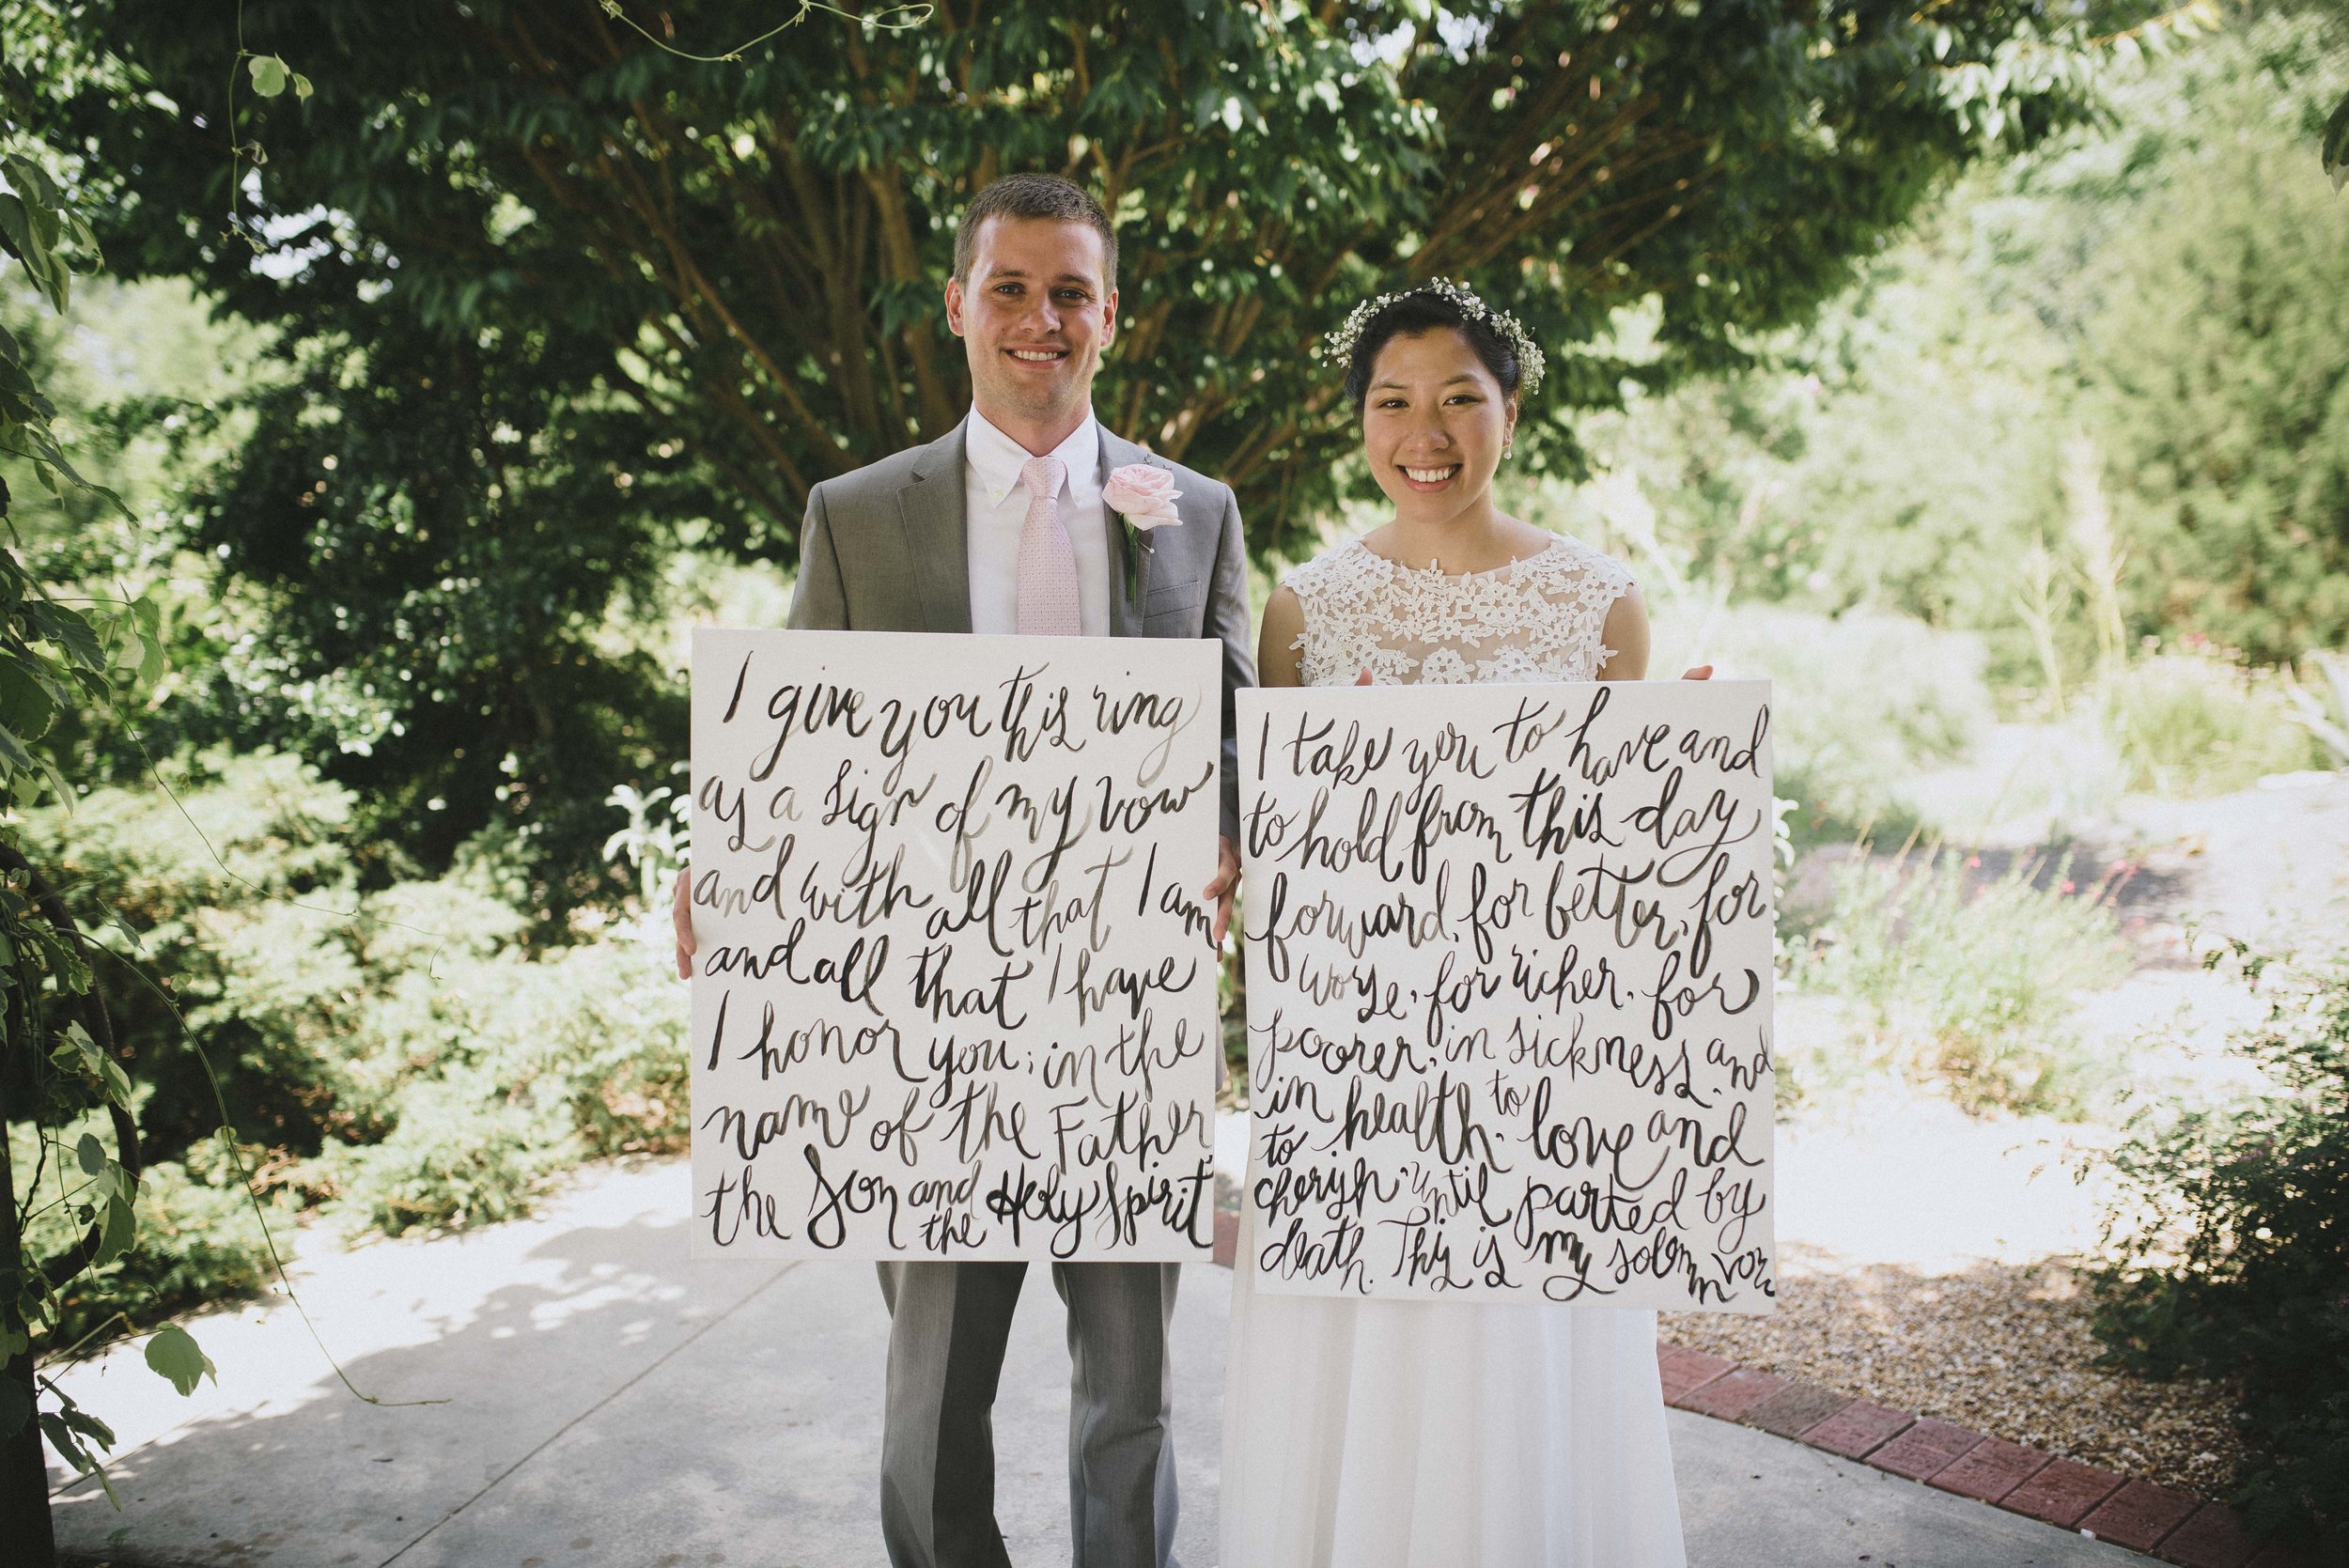 I give you this ring
as a sign of my vow
and with all that I am
and all that I have
I honor you; in the
name of the Father,
the Son and the Holy Spirit
I take you to have and
to hold from this day
forward, for better, for
worse, for richer, for
poorer, in sickness and
in health, to love and
to cherish, until parted by
death. This is my solemn vow